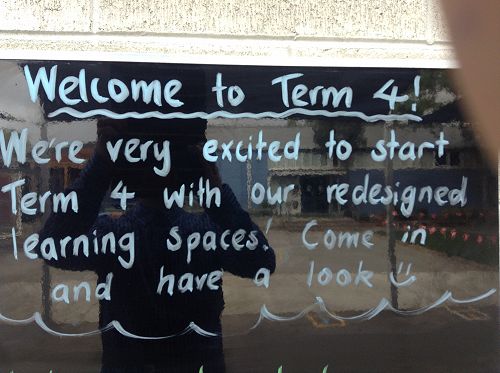 Welcome to Term 4!
We're very excited to start
Term 4 with our redesigned
learning spaces! Come in
and have a look